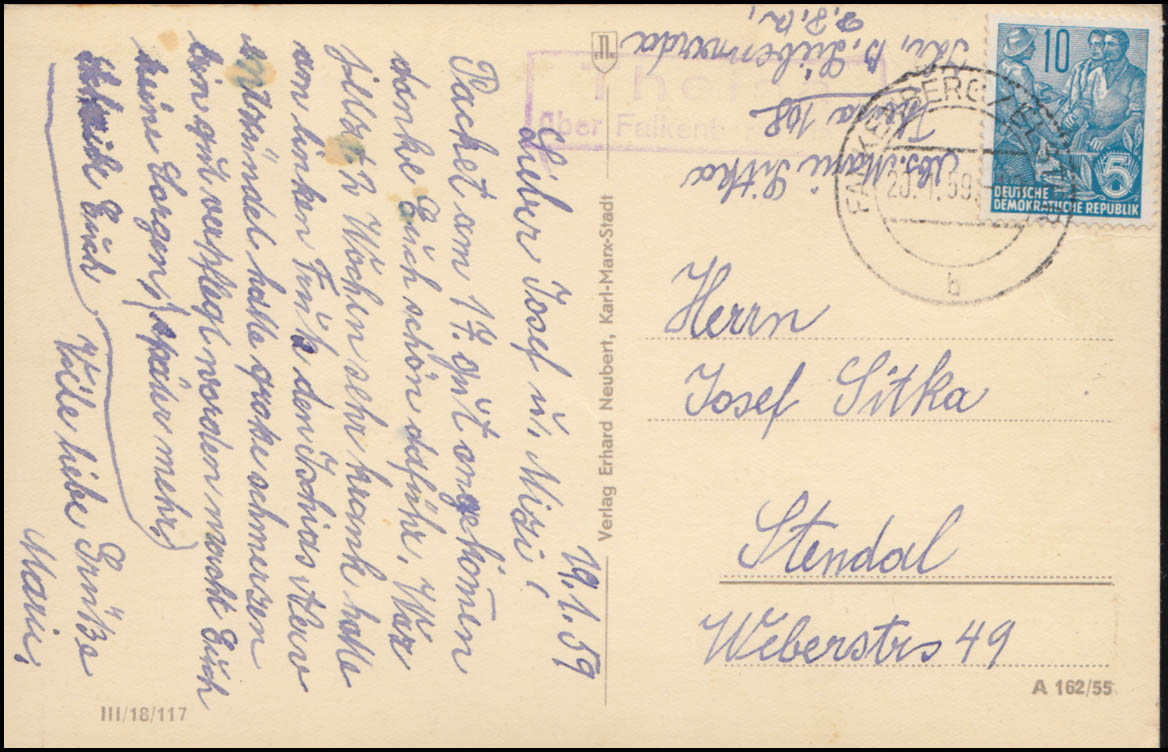 19.1.59
Lieber Josef u. Mizi!
Packet am 17. gut angekomen
danke Euch schön daführ. War
jetzt 2 Wochen sehr krank hatte
am linken Fuß den Ischias Nerv
entzündet hatte große schmerzen
bin gut verpflegt worden macht Euch
keine Sorgen, (späder mehr.)
Euch
Viele liebe Grüße
Marie.
III/18/117
Verlag Erhard Neubert, Karl-Marx-Stadt
Abs. Marie Sitka
Theisa 108
B. Liebenwerda
Theisa
über Falkenb
10
5
DEUTSCHE
DEMOKRATISCHE REPUBLIK
FALKENBERG
20.1.59
b
Herrn
Josef Sitka
Stendal
Weberstrs 49
A 162/55